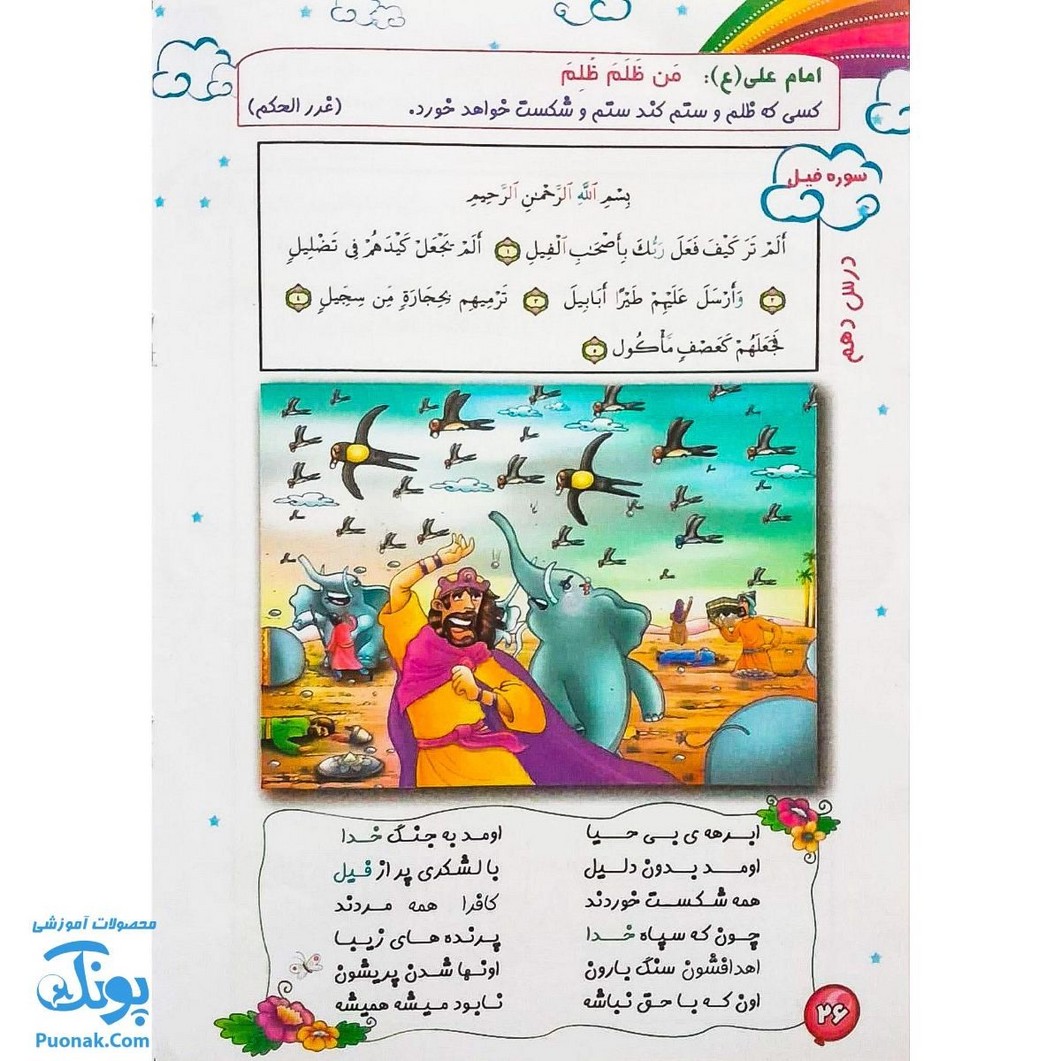 امام علی(ع): مَن ظَلَمَ ظُلِمَ
کسی که ظلم و ستم کند ستم و شکست خواهد خورد. (غرر الحکم)
سوره فیل
درس دهم
بِسْمِ ٱللَّهِ ٱلرَّحْمَٰنِ ٱلرَّحِيمِ
أَلَمْ تَرَ كَيْفَ فَعَلَ رَبُّكَ بِأَصْحَٰبِ ٱلْفِيلِ ۝١ أَلَمْ يَجْعَلْ كَيْدَهُمْ فِي تَضْلِيلٍ
۝٢ وَأَرْسَلَ عَلَيْهِمْ طَيْرًا أَبَابِيلَ ۝٣ تَرْمِيهِم بِحِجَارَةٍ مِّن سِجِّيلٍ ۝٤
فَجَعَلَهُمْ كَعَصْفٍ مَّأْكُول ۝٥
ابرهه ی بی حیا اومد به جنگ خدا
اومد بدون دلیل با لشکری پر از فیل
همه شکست خوردند کافرا همه مردند
چون که سپاه خدا پرنده های زیبا
اهدافشون سنگ بارون اونها شدن پریشون
اون که با حق نباشه نابود میشه همیشه
۲۶
محصولات آموزشی
پونک
Puonak.Com